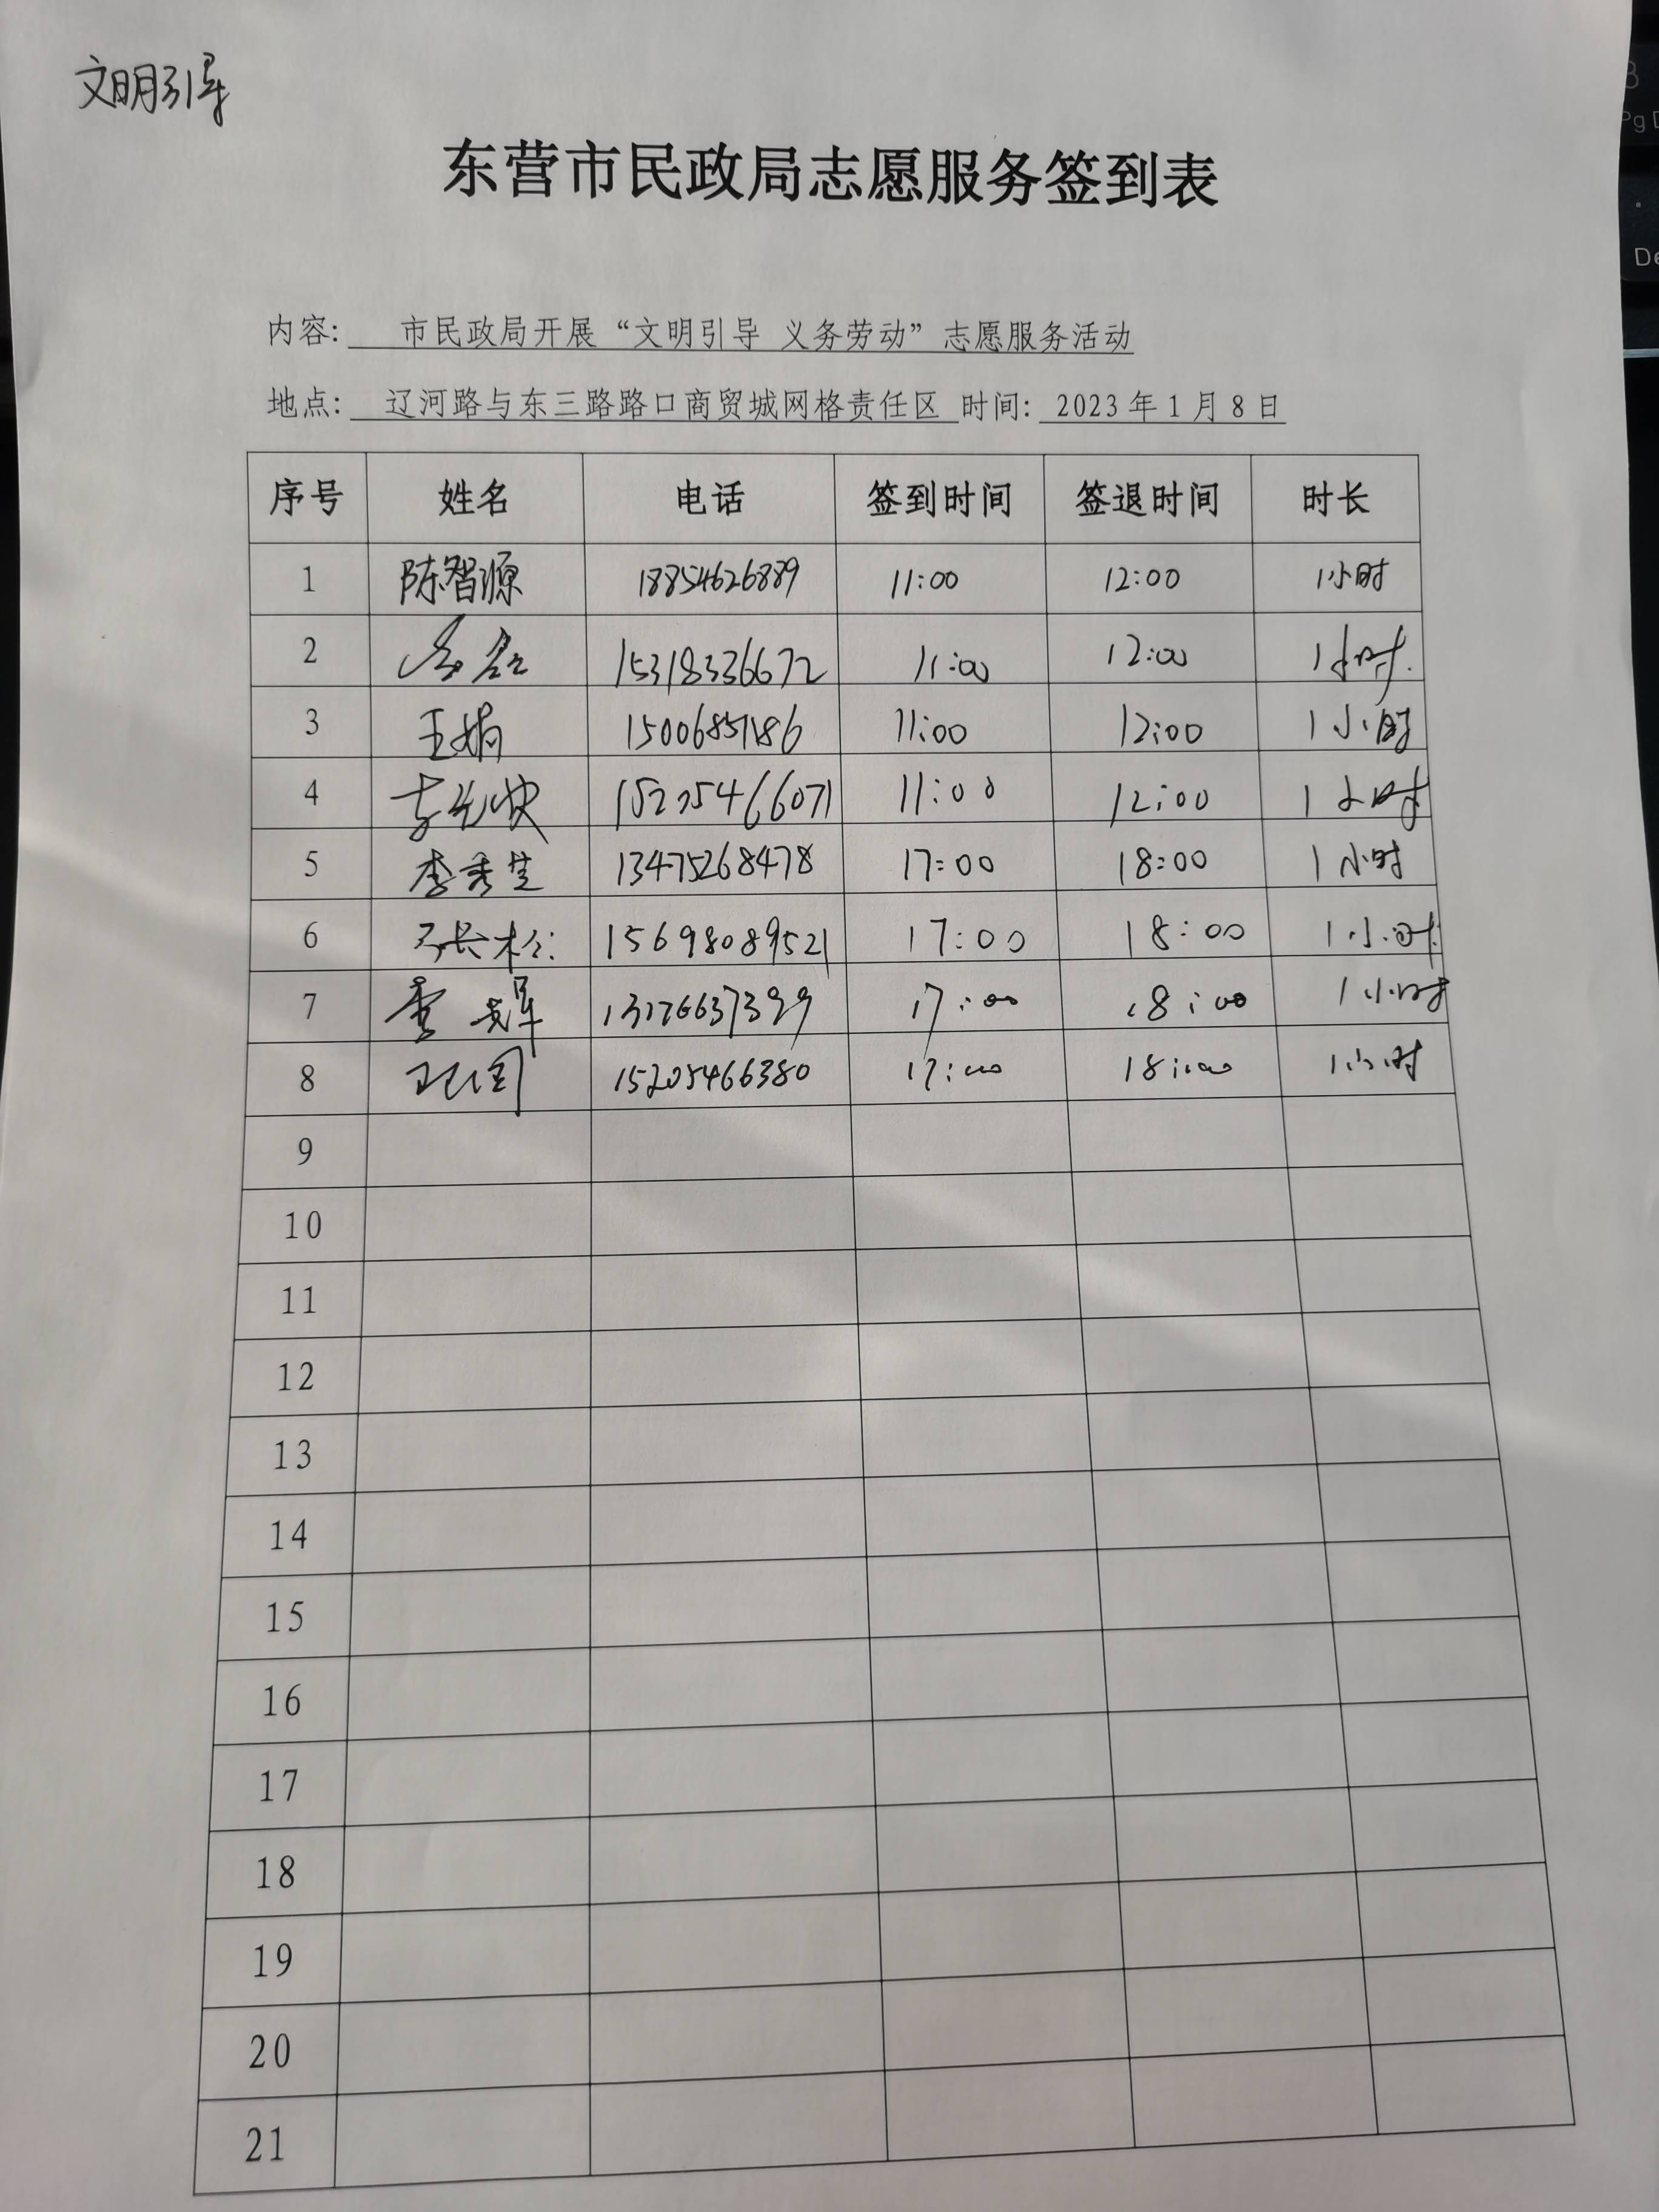 文明引导
东营市民政局志愿服务签到表
内容: 市民政局开展“文明引导 义务劳动”志愿服务活动
地点: 辽河路与东三路路口商贸城网格责任区 时间: 2023年1月8日
序号 姓名 电话 签到时间 签退时间 时长
1 陈智源 18854626889 11:00 12:00 1小时
2 15318336672 11:00 12:00 1小时.
3 王娟 15006857186 11:00 12:00 1小时
4 11:00 12:00 1小时
5 李秀芝 13475268478 17:00 18:00 1小时
6 15698089521 17:00 18:00 1小时
7 17:00 18:00 1小时
8 15205466380 17:00 18:00 1小时
9
10
11
12
13
14
15
16
17
18
19
20
21